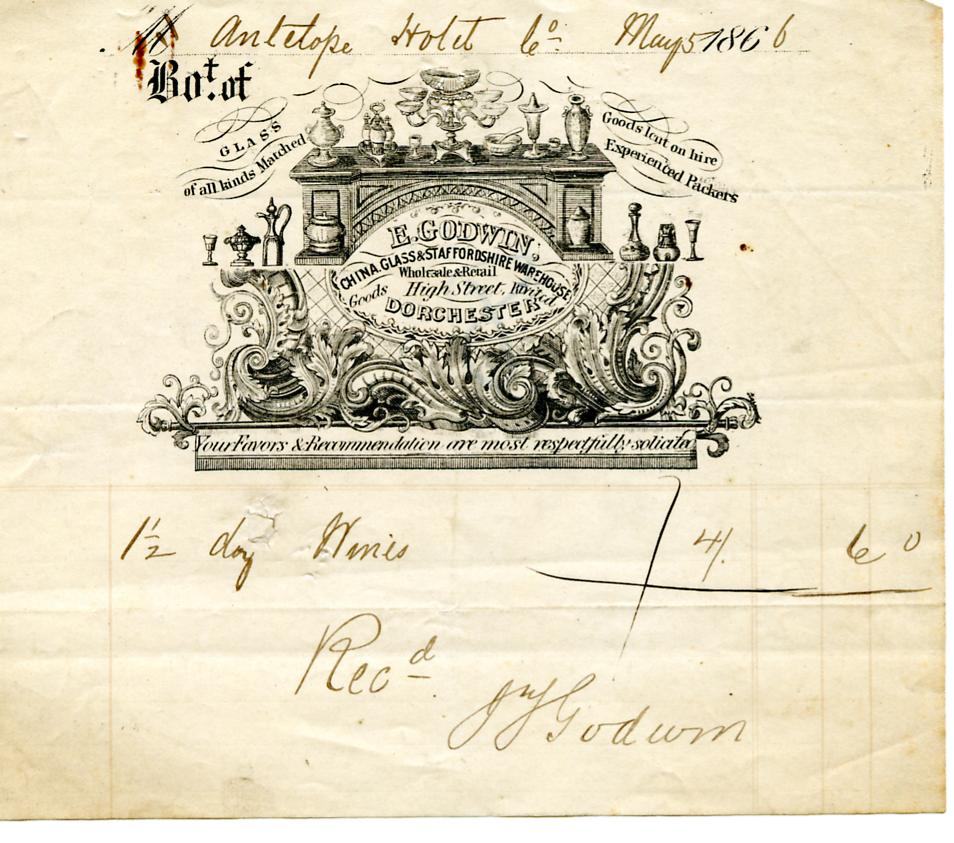 Antelope Hotel Co. May 5 1866
Bot. of
GLASS
of all kinds Matched
Goods lent on hire
Experienced Packers
E. GODWIN,
CHINA, GLASS & STAFFORDSHIRE WAREHOUSE
Wholesale & Retail
Goods High Street, Riveted
DORCHESTER
Your Favors & Recommendation are most respectfully solicited
1½ doz Wines 4/. 6 0
Recd
Godwin